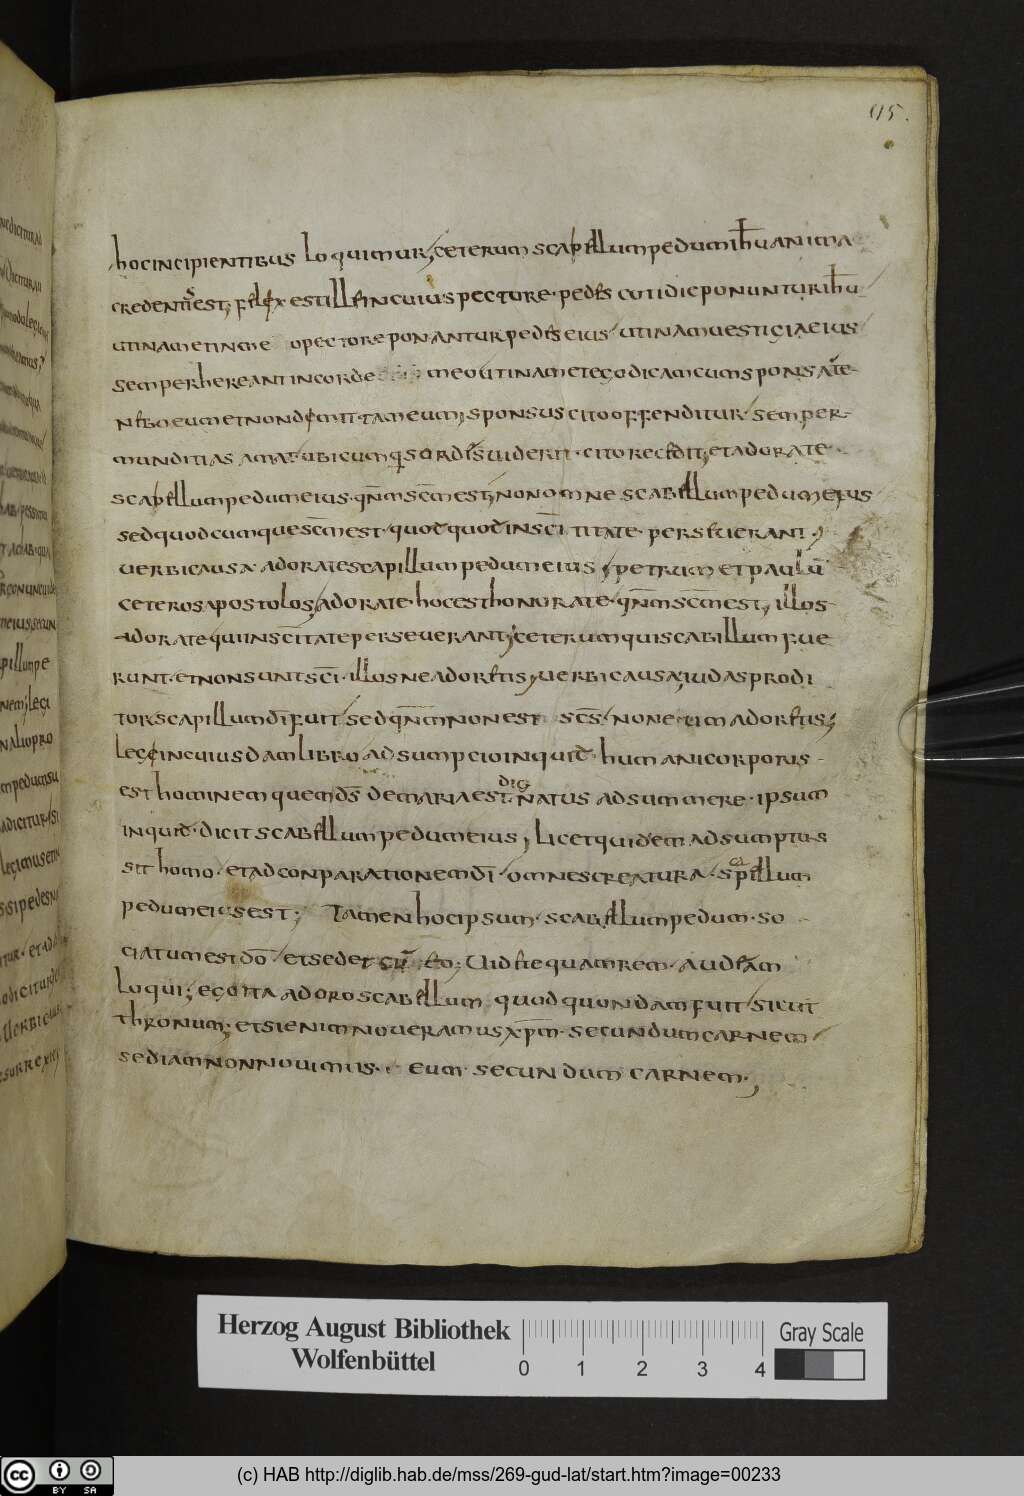 115.
hoc incipientibus loquimur, ceterum scapillum pedum ihu anima
credentis est; felix est ille in cuius pectore pedes cotidie ponuntur ihu
utinam et in me opectore ponantur pedes eius utinam uestigia eius
semper hereant in corde meo utinam et ego dicam cum sponsa te
nebo eum et non demitta eum; sponsus cito offenditur semper
munditias amat ubicumq; sordes uiderit cito recedit; et adorate
scapillum pedum eius qnm scm est; non omne scabillum pedum eius
sed quodcumque scm est quod quod in sci titate perseuerant
uerbi causa adorate scapillum pedum eius petrum et paulū
ceteros apostolos; adorate hoc est honorate qnm scm est, illos
adorate qui in scitate perseuerant; ceterum qui scabillum fue
runt et non sunt sci illos ne adoretis, uerbi causa; iudas prodi
tor scapillum dī fuit sed qnm non est scs non etim adoretis;
lege in cuiusdam libro adsumpcio inquid humani corporis
dig
est hominem quem ds de maria est natus adsummere ipsum
inquid dicit scabillum pedum eius, licet quidem adsumptus
sit homo et ad conparationem dī omnes creatura scapillum
pedum eius est; Tamen hoc ipsum scabillum pedum so
ciatum est dō et sedet cū eo; Uidete quam rem audeam
loqui; ego ita adoro scabillum quod quondam fuit sicut
thronum; etsi enim noueramus xpm secundum carnem
sed iam non nouimus eum secundum carnem;
Herzog August Bibliothek
Wolfenbüttel
0 1 2 3 4
Gray Scale
cc BY SA
(c) HAB http://diglib.hab.de/mss/269-gud-lat/start.htm?image=00233